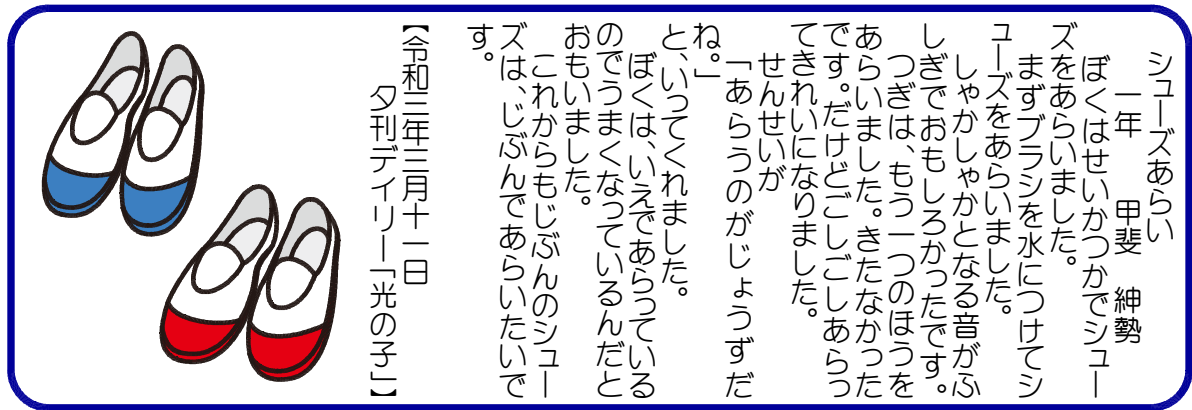 シューズあらい
一年　甲斐　紳勢
ぼくはせいかつかでシュー
ズをあらいました。
まずブラシを水につけてシ
ューズをあらいました。
しゃかしゃかとなる音がふ
しぎでおもしろかったです。
つぎは、もう一つのほうを
あらいました。きたなかった
です。だけどごしごしあらっ
てきれいになりました。
せんせいが
「あらうのがじょうずだ
ね。」
と、いってくれました。
ぼくは、いえであらっている
のでうまくなっているんだと
おもいました。
これからもじぶんのシュー
ズは、じぶんであらいたいで
す。
【令和三年三月十一日
夕刊デイリー「光の子」】